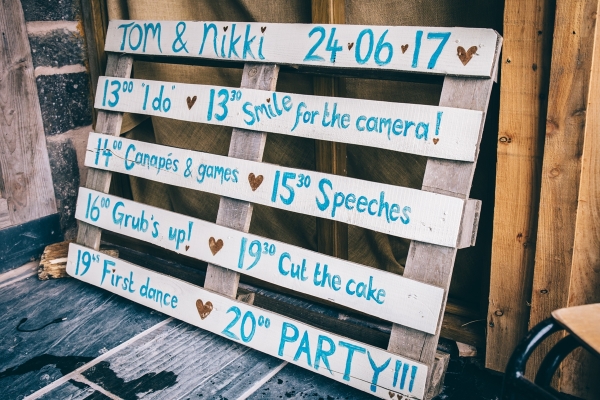 Tom & Nikki 24·06·17
13⁰⁰ "I do" 13³⁰ Smile for the camera!
14⁰⁰ Canapés & games 15³⁰ Speeches
16⁰⁰ Grub's up! 19³⁰ Cut the cake
19⁴⁵ First dance 20⁰⁰ PARTY!!!